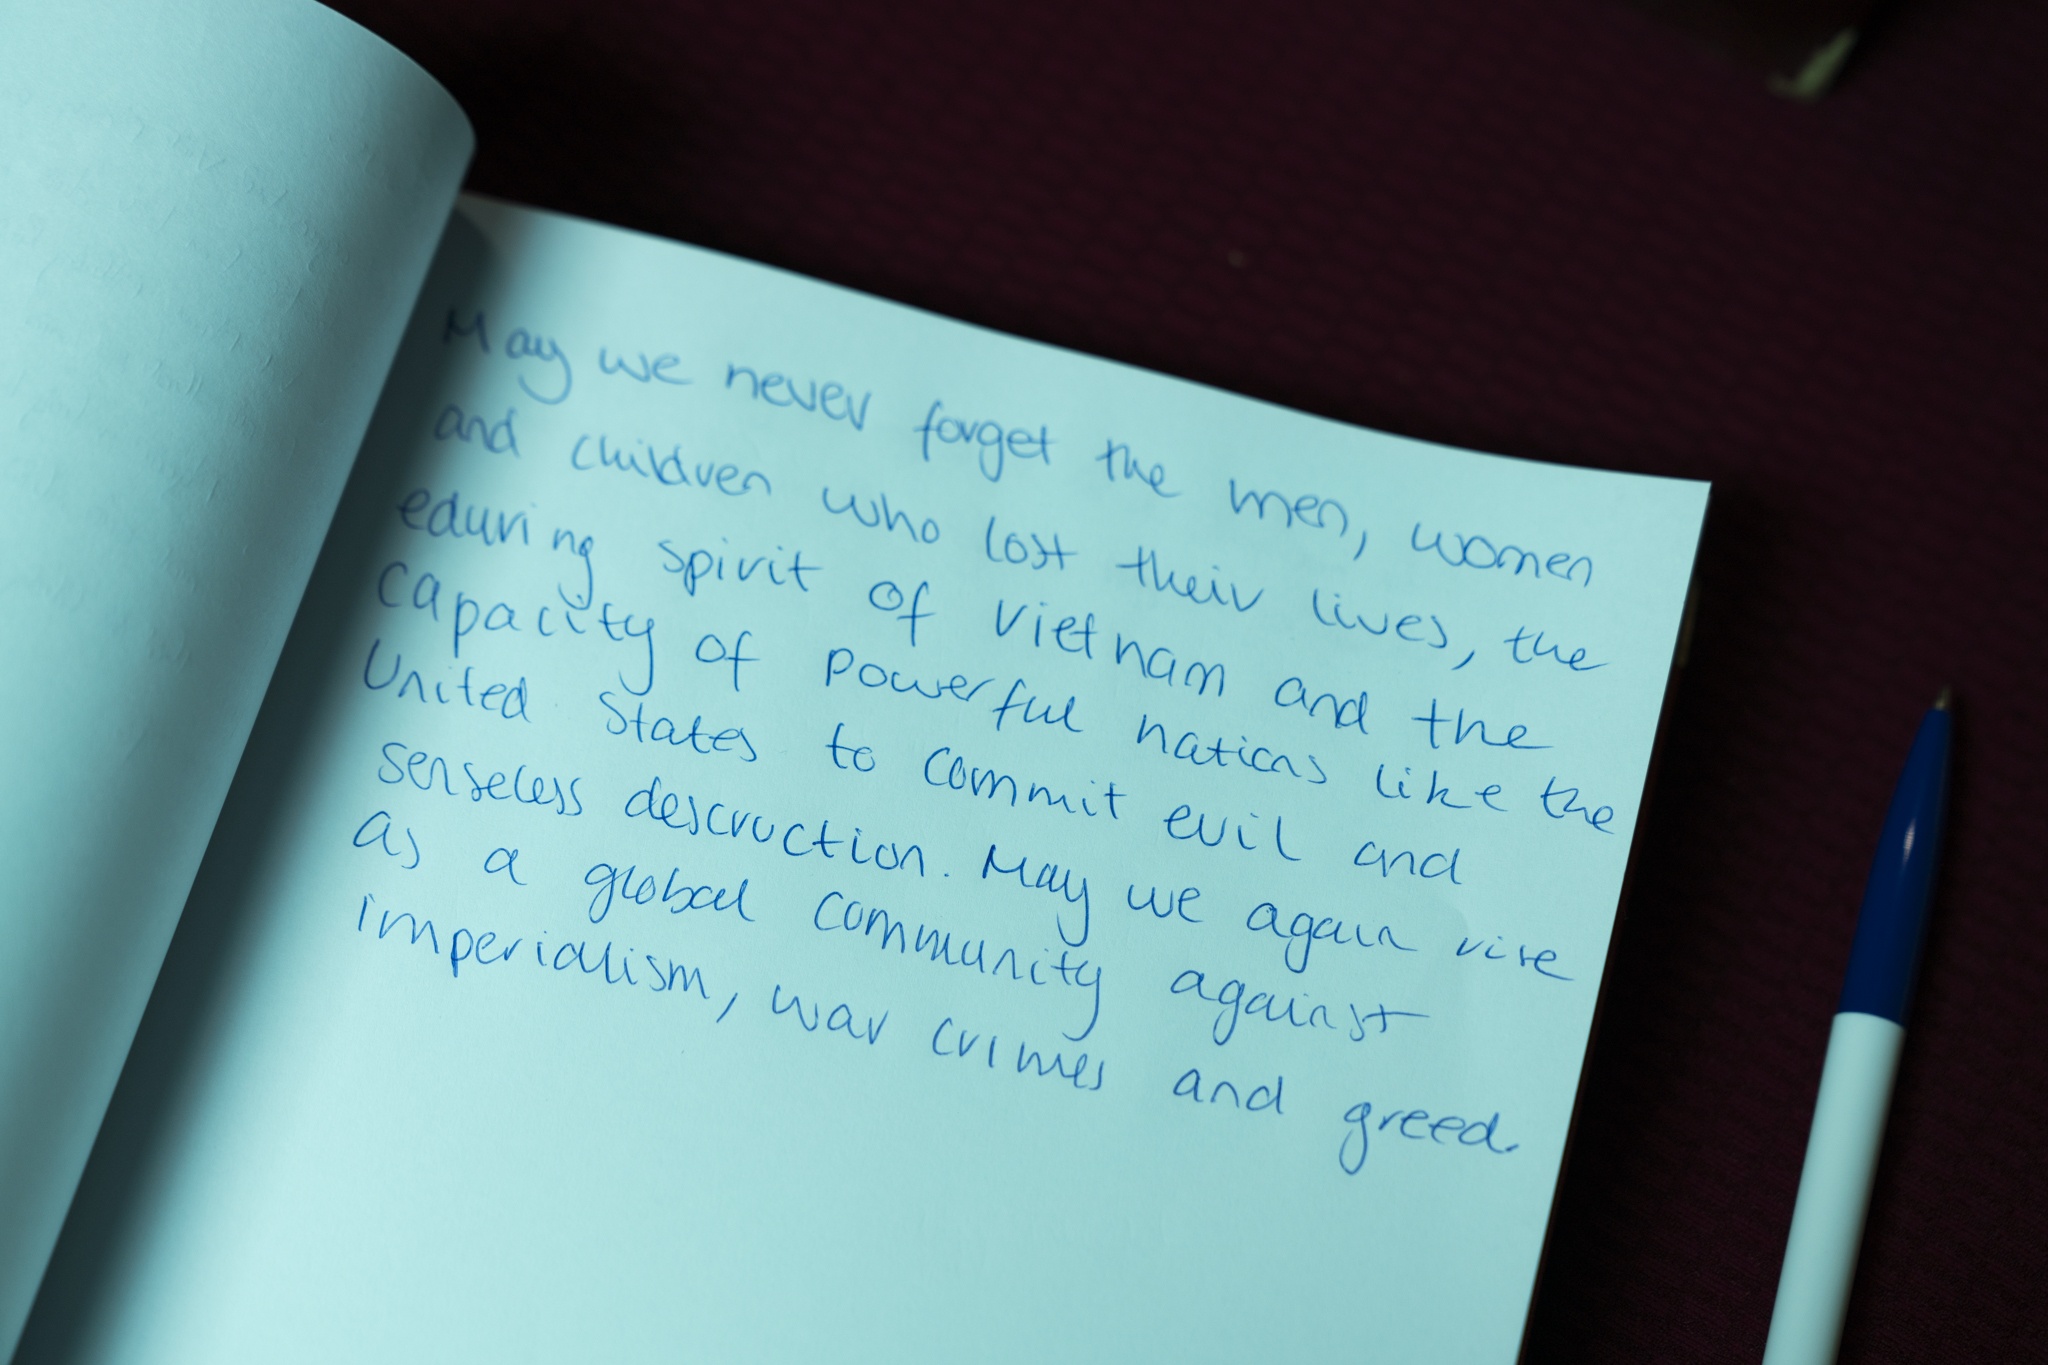 May we never forget the men, women
and children who lost their lives, the
eduring spirit of Vietnam and the
capacity of powerful nations like the
United States to commit evil and
senseless descruction. May we again rise
as a global community against
imperialism, war crimes and greed.